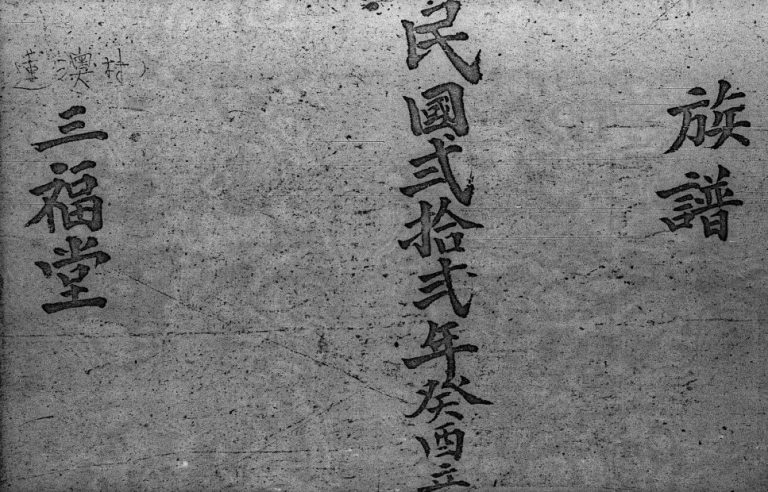 族譜
民國弍拾弍年癸酉立
三福堂
蓮澳村